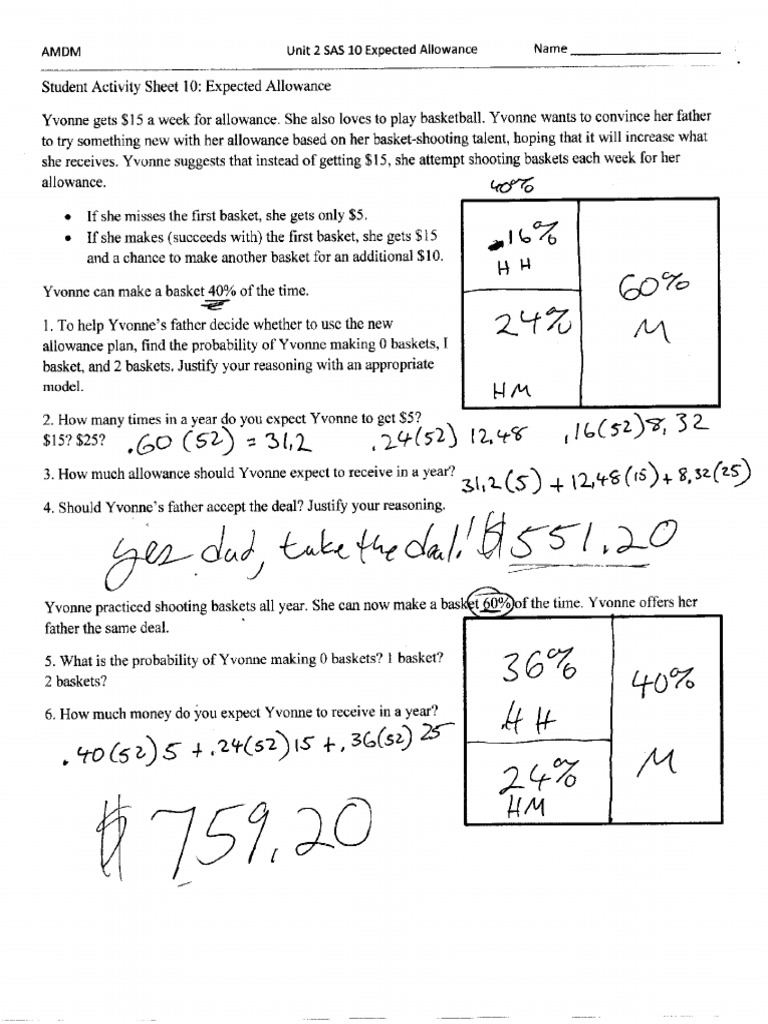 AMDM Unit 2 SAS 10 Expected Allowance Name
Student Activity Sheet 10: Expected Allowance
Yvonne gets $15 a week for allowance. She also loves to play basketball. Yvonne wants to convince her father
to try something new with her allowance based on her basket-shooting talent, hoping that it will increase what
she receives. Yvonne suggests that instead of getting $15, she attempt shooting baskets each week for her
allowance.
• If she misses the first basket, she gets only $5.
• If she makes (succeeds with) the first basket, she gets $15
and a chance to make another basket for an additional $10.
Yvonne can make a basket 40% of the time.
40%
.16%
H H
60%
M
24%
HM
1. To help Yvonne's father decide whether to use the new
allowance plan, find the probability of Yvonne making 0 baskets, 1
basket, and 2 baskets. Justify your reasoning with an appropriate
model.
2. How many times in a year do you expect Yvonne to get $5?
$15? $25? .60 (52) = 31.2 .24(52) 12.48 .16(52) 8.32
3. How much allowance should Yvonne expect to receive in a year? 31.2(5) + 12.48(15) + 8.32(25)
4. Should Yvonne's father accept the deal? Justify your reasoning.
yes dad, take the deal! $551.20
Yvonne practiced shooting baskets all year. She can now make a basket 60% of the time. Yvonne offers her
father the same deal.
5. What is the probability of Yvonne making 0 baskets? 1 basket?
2 baskets?
36%
H H
40%
M
24%
HM
6. How much money do you expect Yvonne to receive in a year?
.40(52)5 + .24(52)15 + .36(52) 25
$759.20